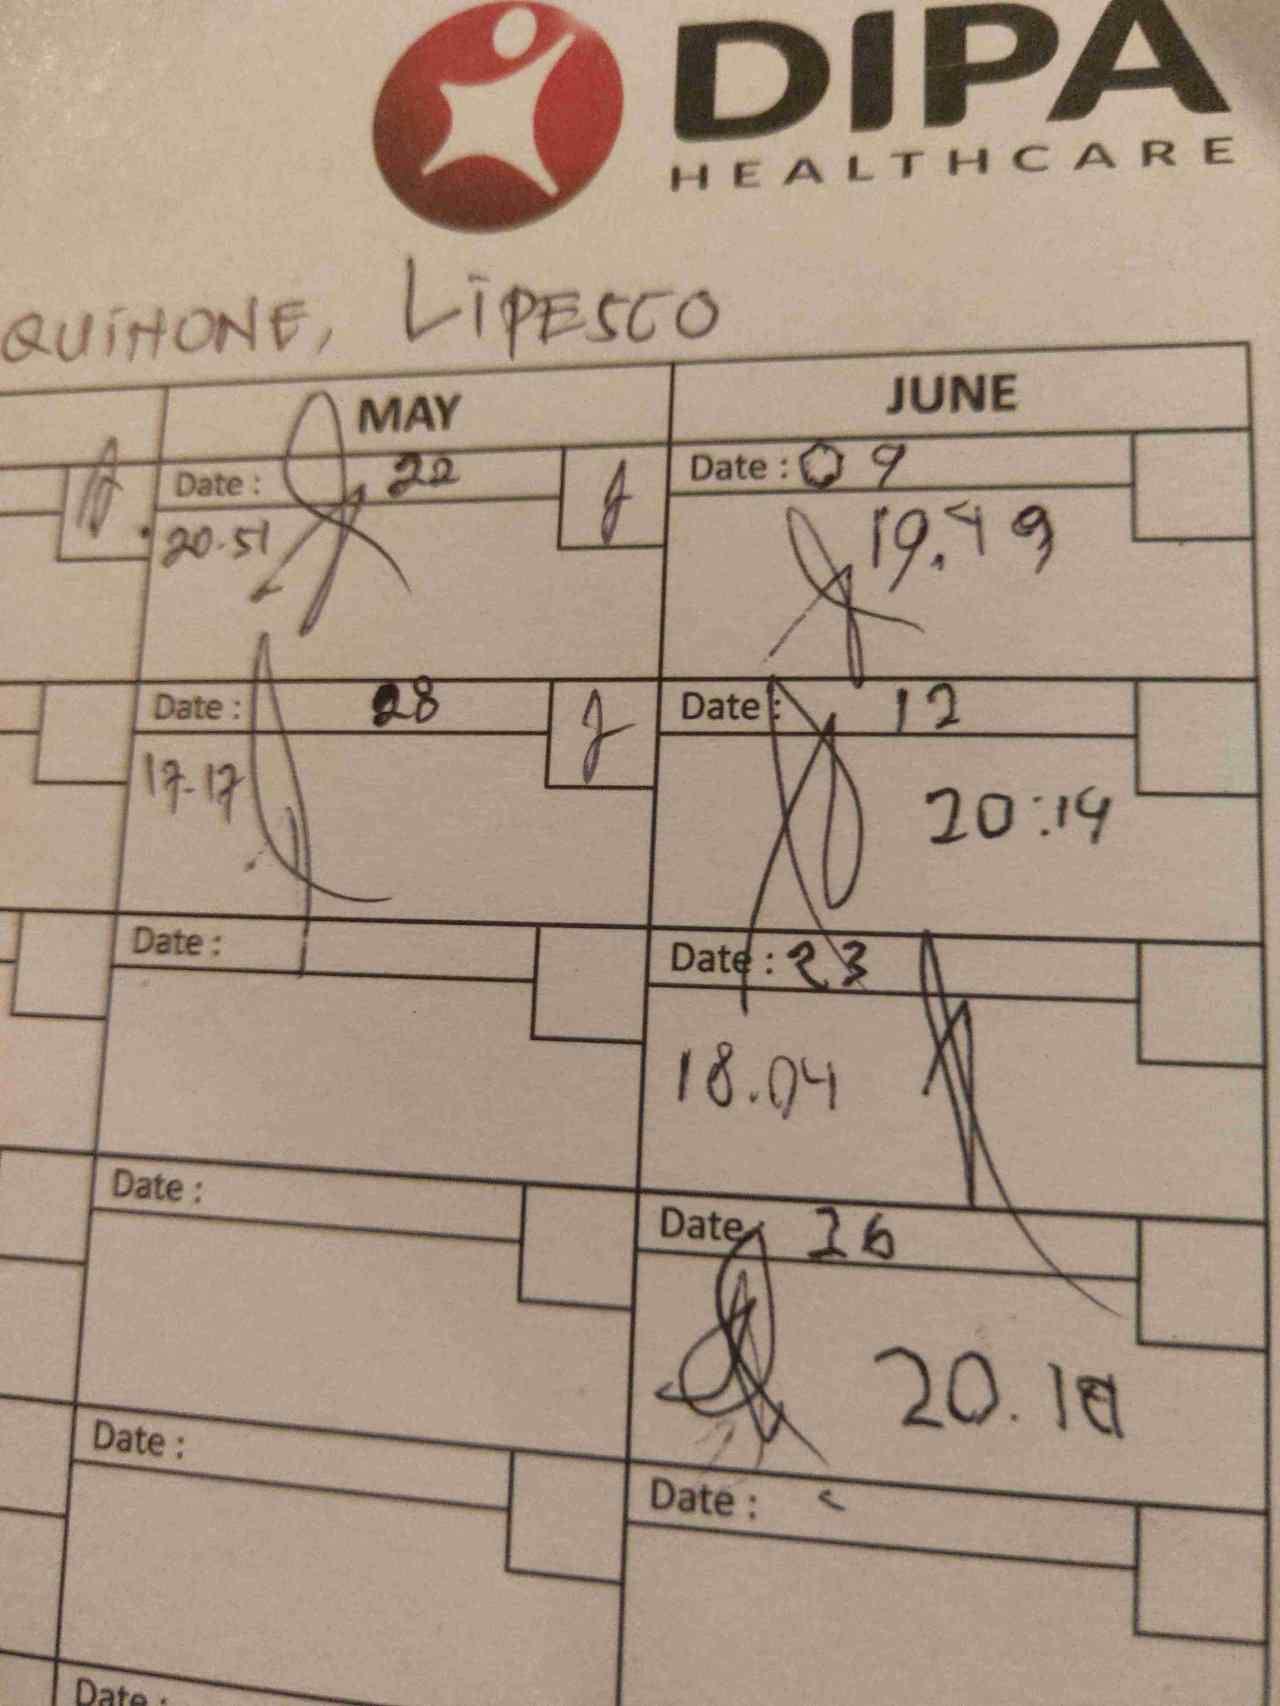 DIPA
HEALTHCARE
QUIHONE, LIPESCO
MAY
JUNE
Date : 22
Date : 09
20.51
19.49
Date : 28
Date : 12
17.17
20:14
Date :
Date : 23
18.04
Date :
Date : 26
20.18
Date :
Date :
Date :